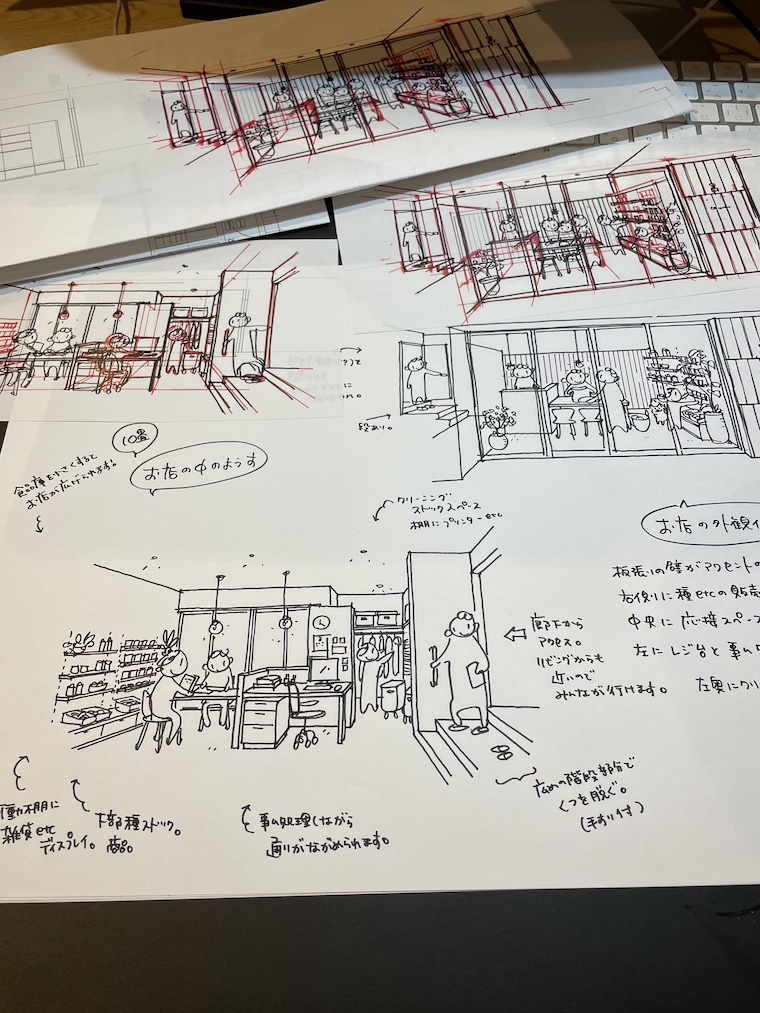 段あり。
10畳
お店の中のようす
食品庫を小さくすると
お店が広げられます。
クリーニング
ストックスペース
棚にプリンターetc
お店の外観イ
板張りの壁がアクセントの
右側に種etcの販売
中央に応接スペース
左にレジ台と事ム
左奥にクリ
廊下から
アクセス。
リビングからも
近いので
みんなが行けます。
広めの階段部分で
くつを脱ぐ。
(手すり付)
動棚に
雑貨etc
ディスプレイ。
下部種ストック。
商品。
事ム処理しながら
通りがながめられます。